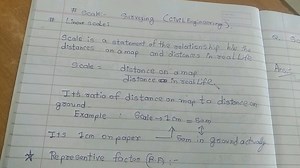 # Scale Surveying (Civil Engineering)
* Linear scales
Scale is a statement of the relationship b/w the
distances on a map and distances in real life
Scale = distance on a map
distance in real life
Its ratio of distance on map to distance on
ground
Example :- Scale → 1cm = 5cm
Its 1cm on paper 5cm in ground actually
* Representive factor (R.F) :-